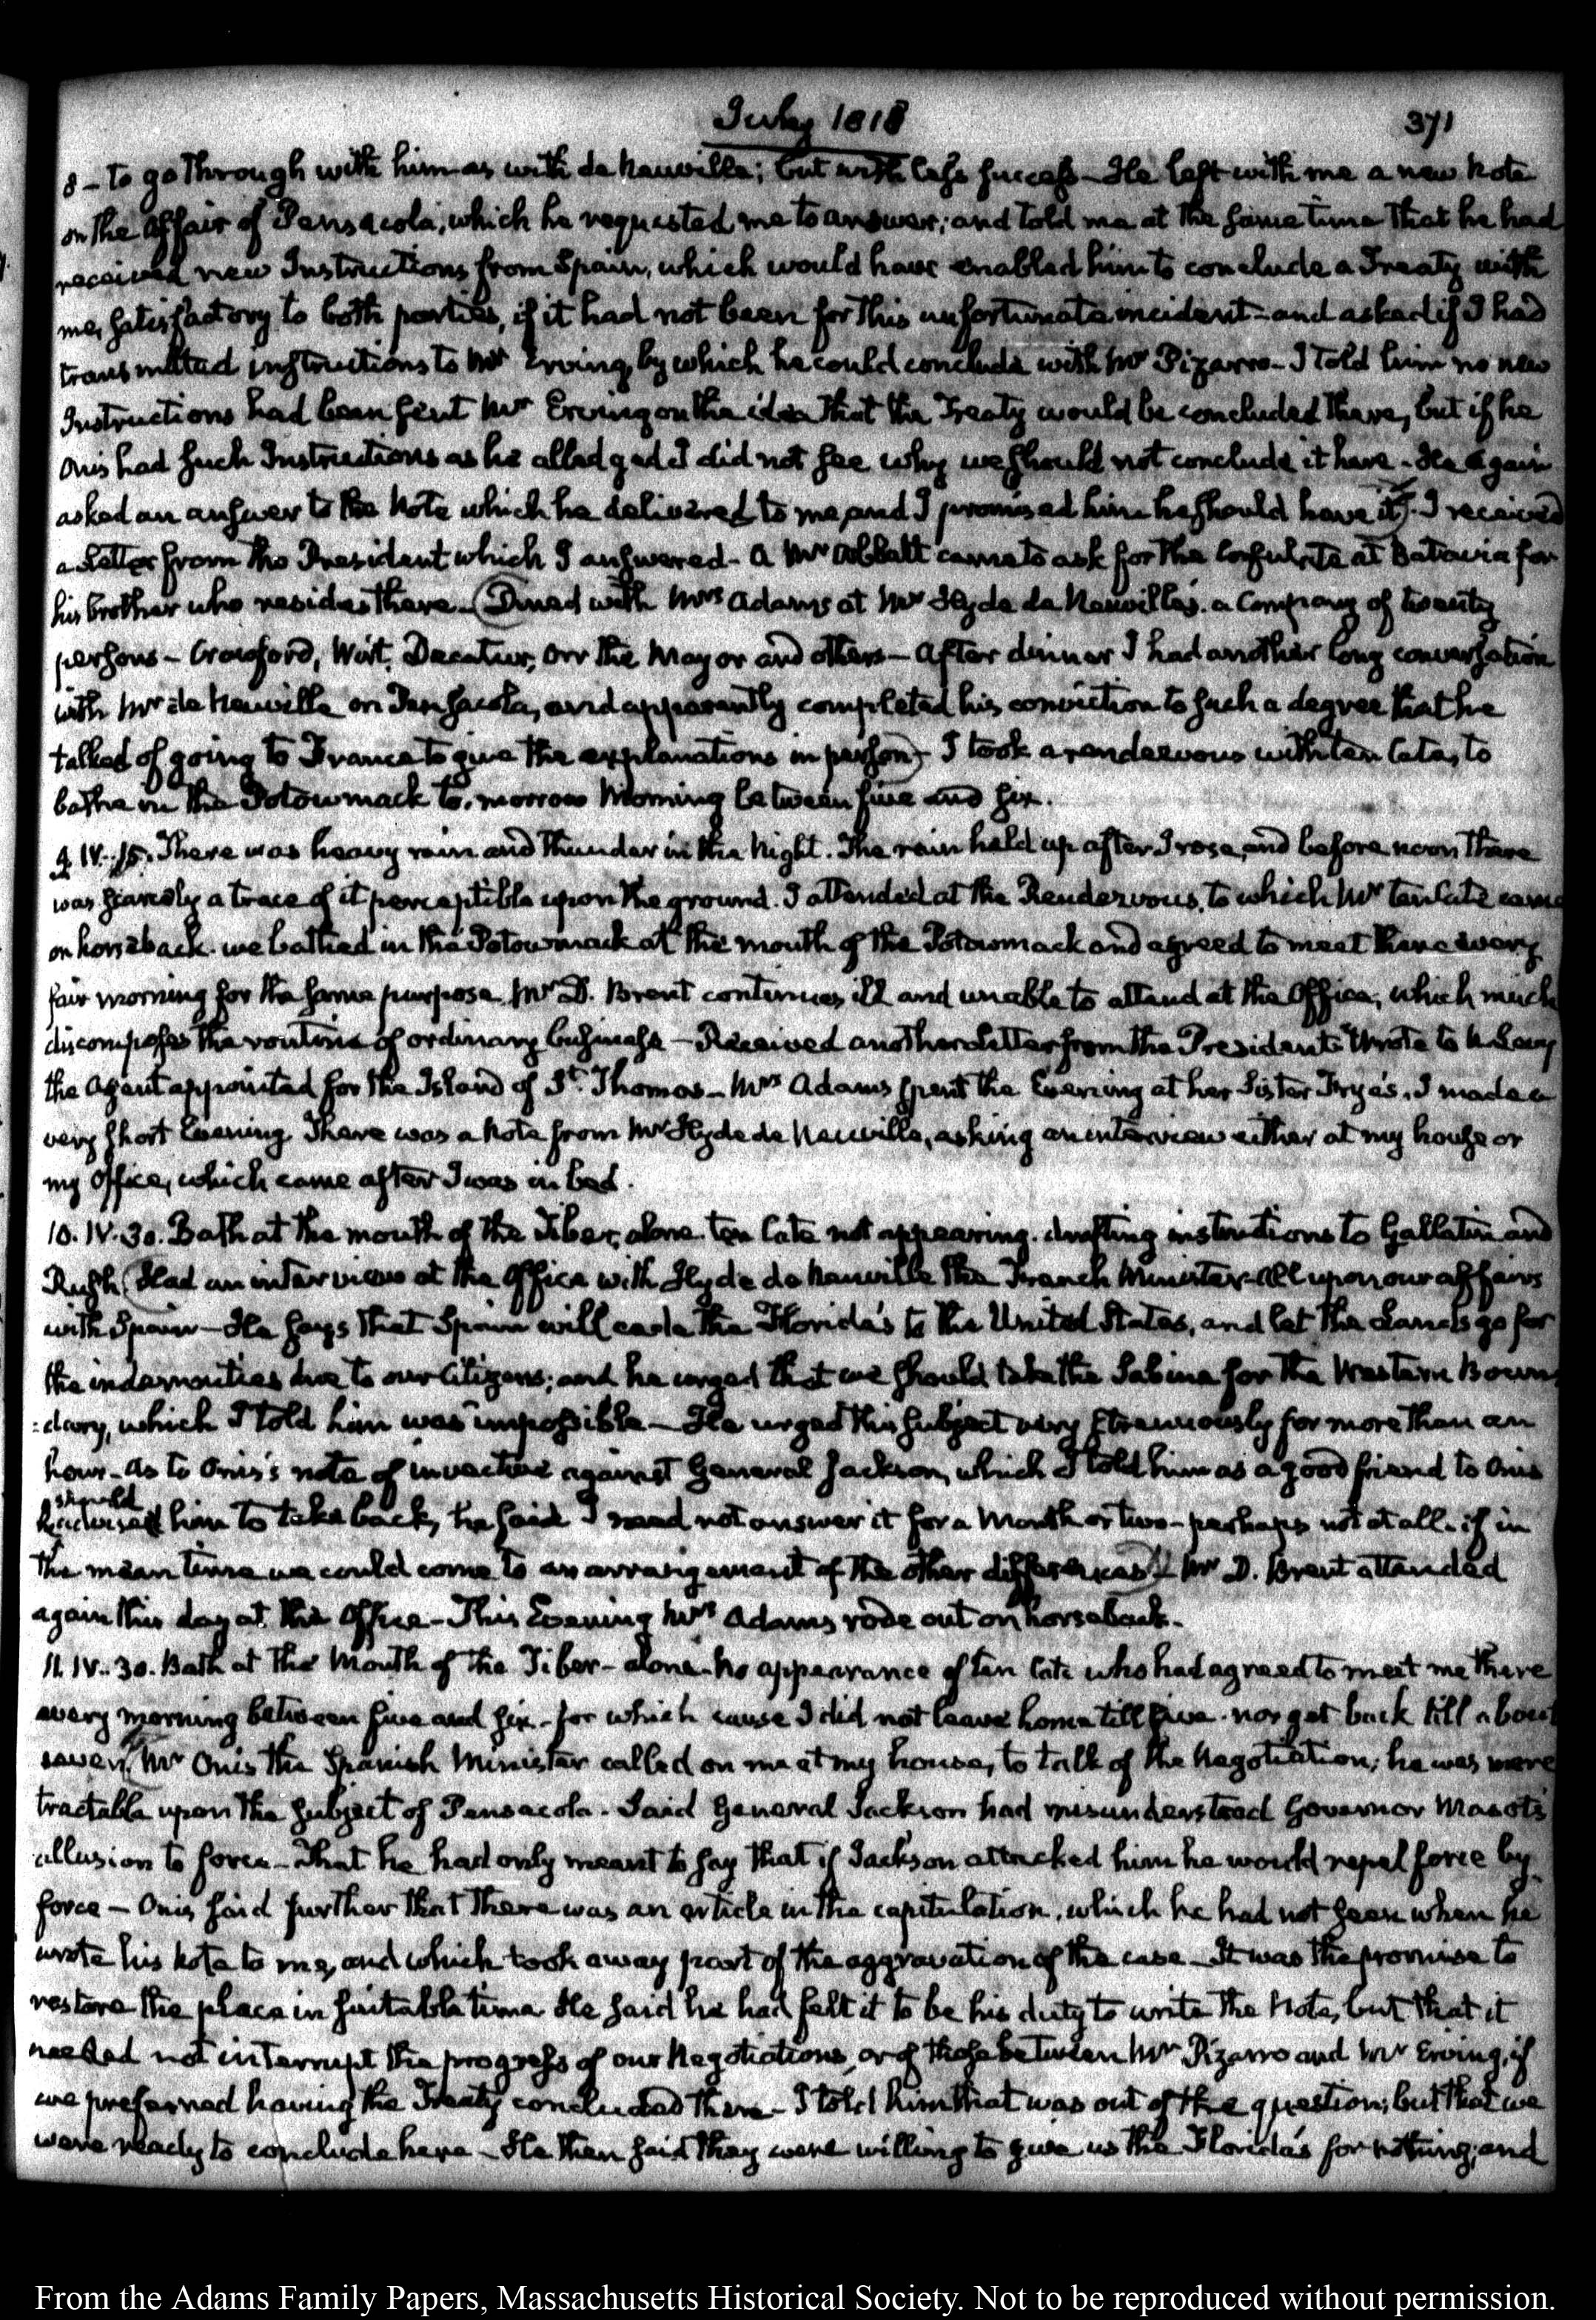 July 1818
371
8 - to go through with him as with de Neuville; but with less success - He left with me a new Note
on the affair of Pensacola, which he requested me to answer; and told me at the same time that he had
received new Instructions from Spain, which would have enabled him to conclude a Treaty with
me, satisfactory to both parties, if it had not been for this unfortunate incident - and asked if I had
transmitted instructions to Mr Erving, by which he could conclude with Mr Pizarro - I told him no new
Instructions had been sent Mr Erving on the idea that the Treaty would be concluded there, but if he
Onis had such Instructions as he alledged I did not see why we should not conclude it here - He again
asked an answer to the Note which he delivered to me, and I promised him he should have it). I received
a Letter from the President which I answered - A Mr Abbott came to ask for the Consulate at Batavia for
his brother who resides there - (Dined with Mrs Adams at Mr Hyde de Neuville's. a Company of twenty
persons - Crawford, Wirt, Decatur, Orr the Mayor and others - After dinner I had another long conversation
with Mr de Neuville on Pensacola, and apparently completed his conviction to such a degree that he
talked of going to France to give the explanations in person) - I took a rendezvous with ten Cate, to
bathe in the Potowmack to-morrow Morning between five and six.
9. IV. 15. There was heavy rain and thunder in the Night. The rain held up after I rose, and before noon there
was scarcely a trace of it perceptible upon the ground. I attended at the Rendezvous, to which Mr ten Cate came
on horseback. we bathed in the Potowmack at the mouth of the Potowmack and agreed to meet there every
fair morning for the same purpose. Mr D. Brent continues ill and unable to attend at the Office, which much
discomposes the routine of ordinary business - Received another Letter from the President - Wrote to
the Agent appointed for the Island of St. Thomas - Mrs Adams spent the Evening at her Sister Frye's. I made a
very short Evening. There was a Note from Mr Hyde de Neuville, asking an interview either at my house or
my Office, which came after I was in bed.
10. IV. 30. Bath at the mouth of the Tiber, alone. ten Cate not appearing. drafting instructions to Gallatin and
Rush. (Had an interview at the Office with Hyde de Neuville the French Minister - all upon our affairs
with Spain - He says that Spain will cede the Florida's to the United States, and let the Lands go for
the indemnities due to our Citizens; and he urged that we should take the Sabine for the Western Boun-
:dary, which I told him was impossible - He urged this subject very strenuously for more than an
hour - As to Onis's note of invective against General Jackson, which I told him as a good friend to Onis
should
he advise him to take back, he said I need not answer it for a Month or two - perhaps not at all - if in
the mean time we could come to an arrangement of the other differences) - Mr D. Brent attended
again this day at the Office - This Evening Mrs Adams rode out on horseback.
11. IV. 30. Bath at the Mouth of the Tiber - alone. No appearance of ten Cate who had agreed to meet me there
every morning between five and six - for which cause I did not leave home till five. nor get back till about
seven. (Mr Onis the Spanish Minister called on me at my house, to talk of the Negotiation; he was more
tractable upon the subject of Pensacola. Said General Jackson had misunderstood Governor Masot's
allusion to force - That he had only meant to say that if Jackson attacked him he would repel force by
force - Onis said further that there was an article in the capitulation, which he had not seen when he
wrote his Note to me, and which took away part of the aggravation of the case - It was the promise to
restore the place in suitable time. He said he had felt it to be his duty to write the Note, but that it
needed not interrupt the progress of our Negotiations, or of those between Mr Pizarro and Mr Erving, if
we preferred having the Treaty concluded there - I told him that was out of the question; but that we
were ready to conclude here - He then said they were willing to give us the Florida's for nothing, and
From the Adams Family Papers, Massachusetts Historical Society. Not to be reproduced without permission.